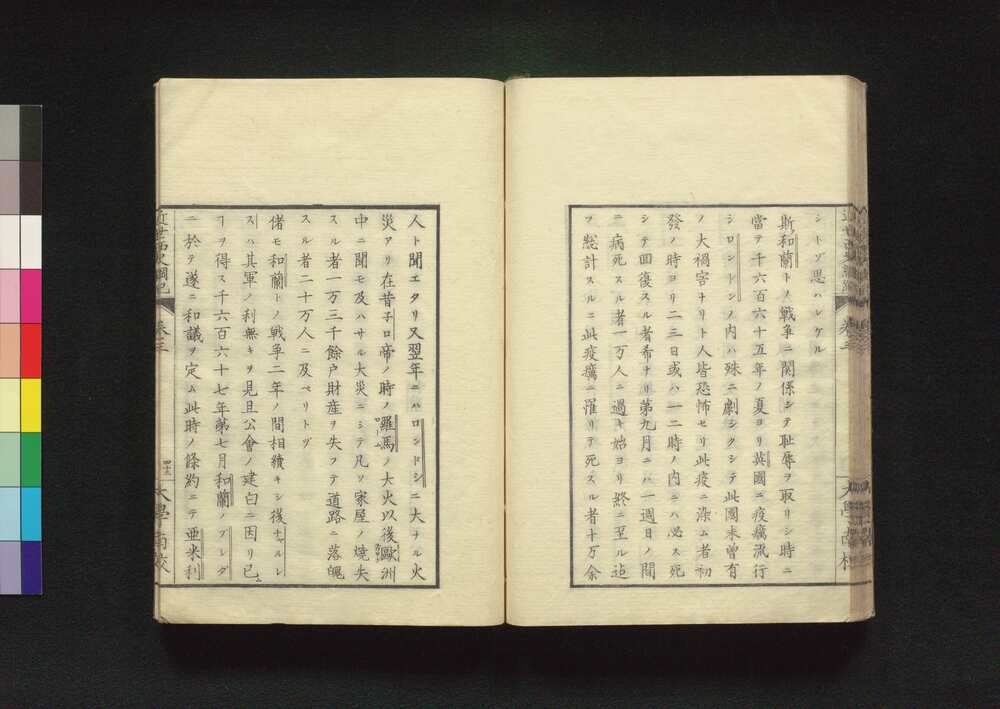 シトゾ思ハレケル
斯和蘭トノ戦争ニ関係シテ耻辱ヲ取リシ時ニ
當テ千六百六十五年ノ夏ヨリ英國ニ疫癘流行
シロンドンノ内ハ殊ニ劇シクシテ此國未曽有
ノ大禍害ナリト人皆恐怖セリ此疫ニ染ム者初
發ノ時ヨリ二三日或ハ一二時ノ内ニハ必ス死
シテ回復スル者希ナリ第九月ニハ一週日ノ間
ニ病死スル者一万人ニ過キ始ヨリ終ニ至ル迠
ヲ惣計スルニ此疫癘ニ罹リテ死スル者十万余
人ト聞エタリ又翌年ニハロンドンニ大ナル火
災アリ在昔子ロ帝ノ時ノ羅馬ノ大火以後歐洲
中ニ聞モ及ハサル大災ニシテ凡ソ家屋ノ燒失
スル者一万三千餘户財産ヲ失フテ道路ニ落魄
スル者二十万人ニ及ベリトゾ
偖モ和蘭トノ戦争二年ノ間相續キシ後チャルレ
スハ其軍ノ利無キヲ見且公會ノ建白ニ因リ已ム
ヿヲ得ス千六百六十七年第七月和蘭ノブレダ
ニ於テ遂ニ和議ヲ定ム此時ノ條約ニテ亜米利
近世西史綱紀 卷三 四十六 大學南校